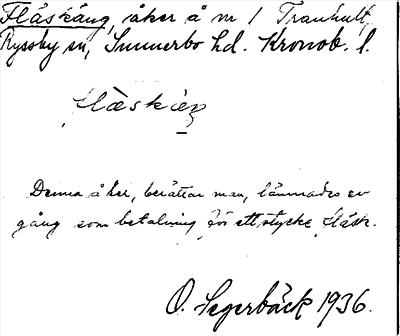 Fläskäng, åker å nr 1 Tranhult,
Ryssby sn, Sunnerbo hd. Kronob. l.
Denna åker, berättar man, lämnades en
gång som betalning för ett stycke fläsk.
O. Segerbäck 1936.